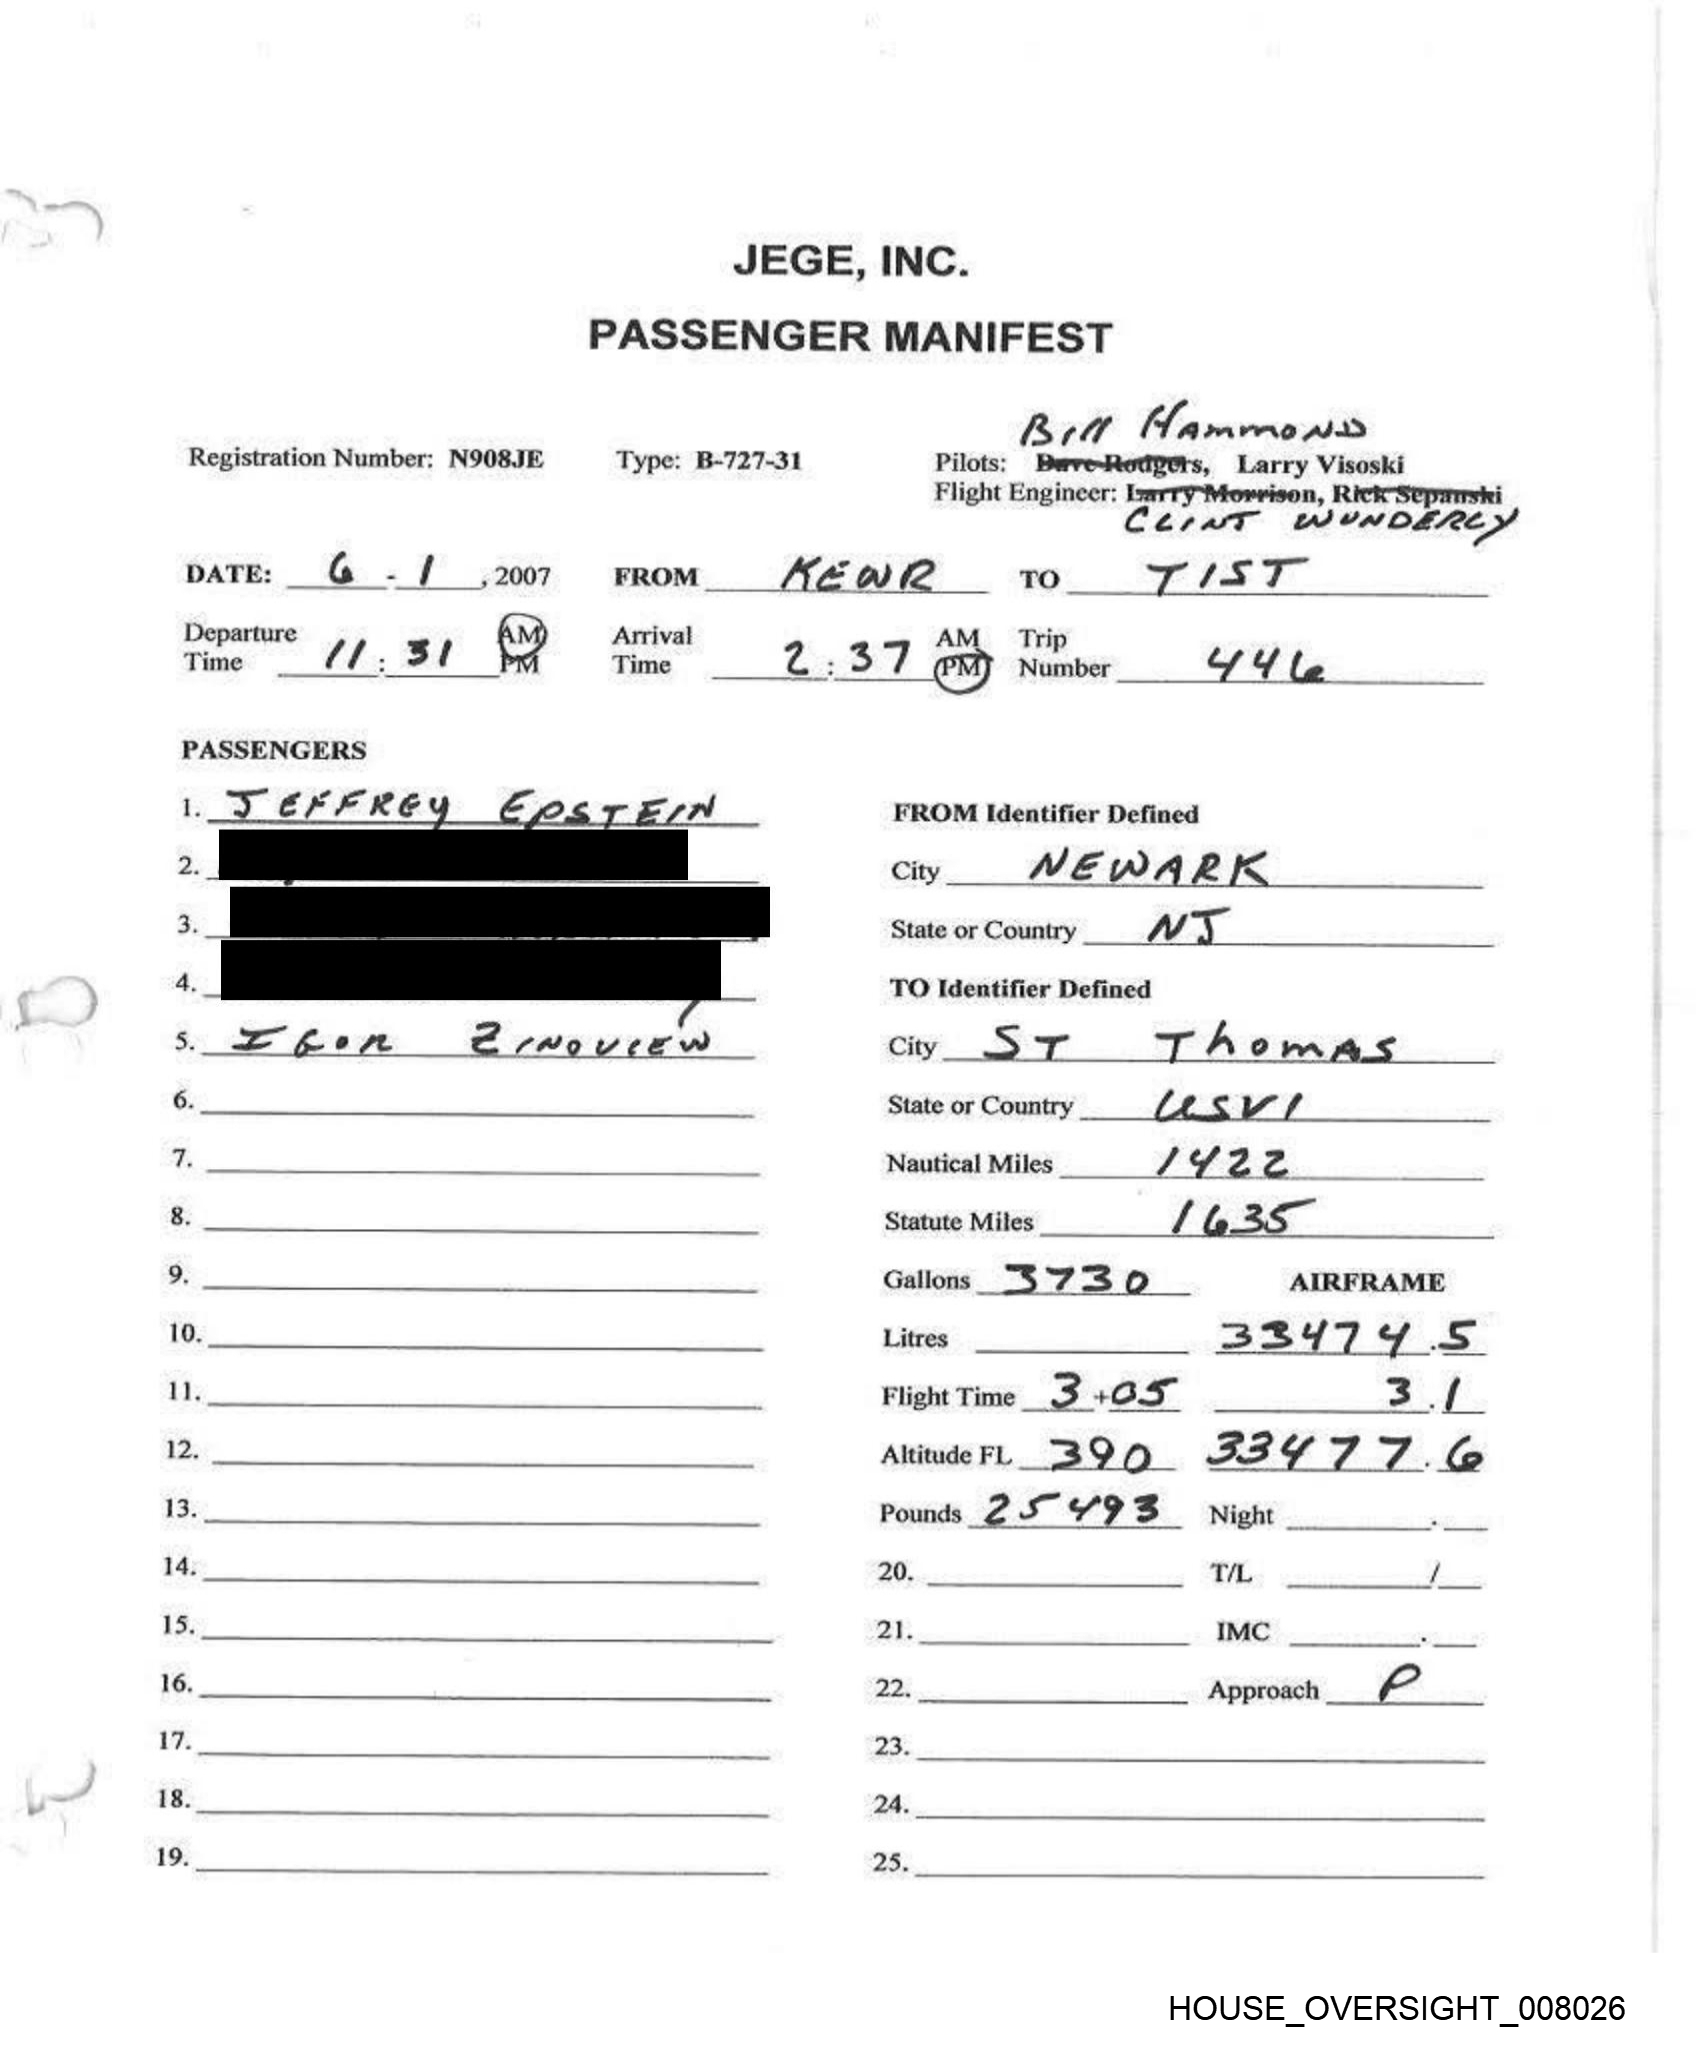 JEGE, INC.
PASSENGER MANIFEST
Bill Hammond
Registration Number: N908JE Type: B-727-31 Pilots: Dave Rodgers, Larry Visoski
Flight Engineer: Larry Morrison, Rick Sepanski
CLINT WUNDERLY
DATE: 6 - 1, 2007 FROM KEWR TO TIST
Departure Time 11:31 AM PM Arrival Time 2:37 AM PM Trip Number 446
PASSENGERS
1. JEFFREY EPSTEIN
FROM Identifier Defined
2.
City NEWARK
3.
State or Country NJ
4.
TO Identifier Defined
5. IGOR ZINOVIEW
City ST Thomas
6.
State or Country USVI
7.
Nautical Miles 1422
8.
Statute Miles 1635
9.
Gallons 3730 AIRFRAME
10.
Litres 33474.5
11.
Flight Time 3+05 3.1
12.
Altitude FL 390 33477.6
13.
Pounds 25493 Night .
14.
20. T/L /
15.
21. IMC .
16.
22. Approach P
17.
23.
18.
24.
19.
25.
HOUSE_OVERSIGHT_008026